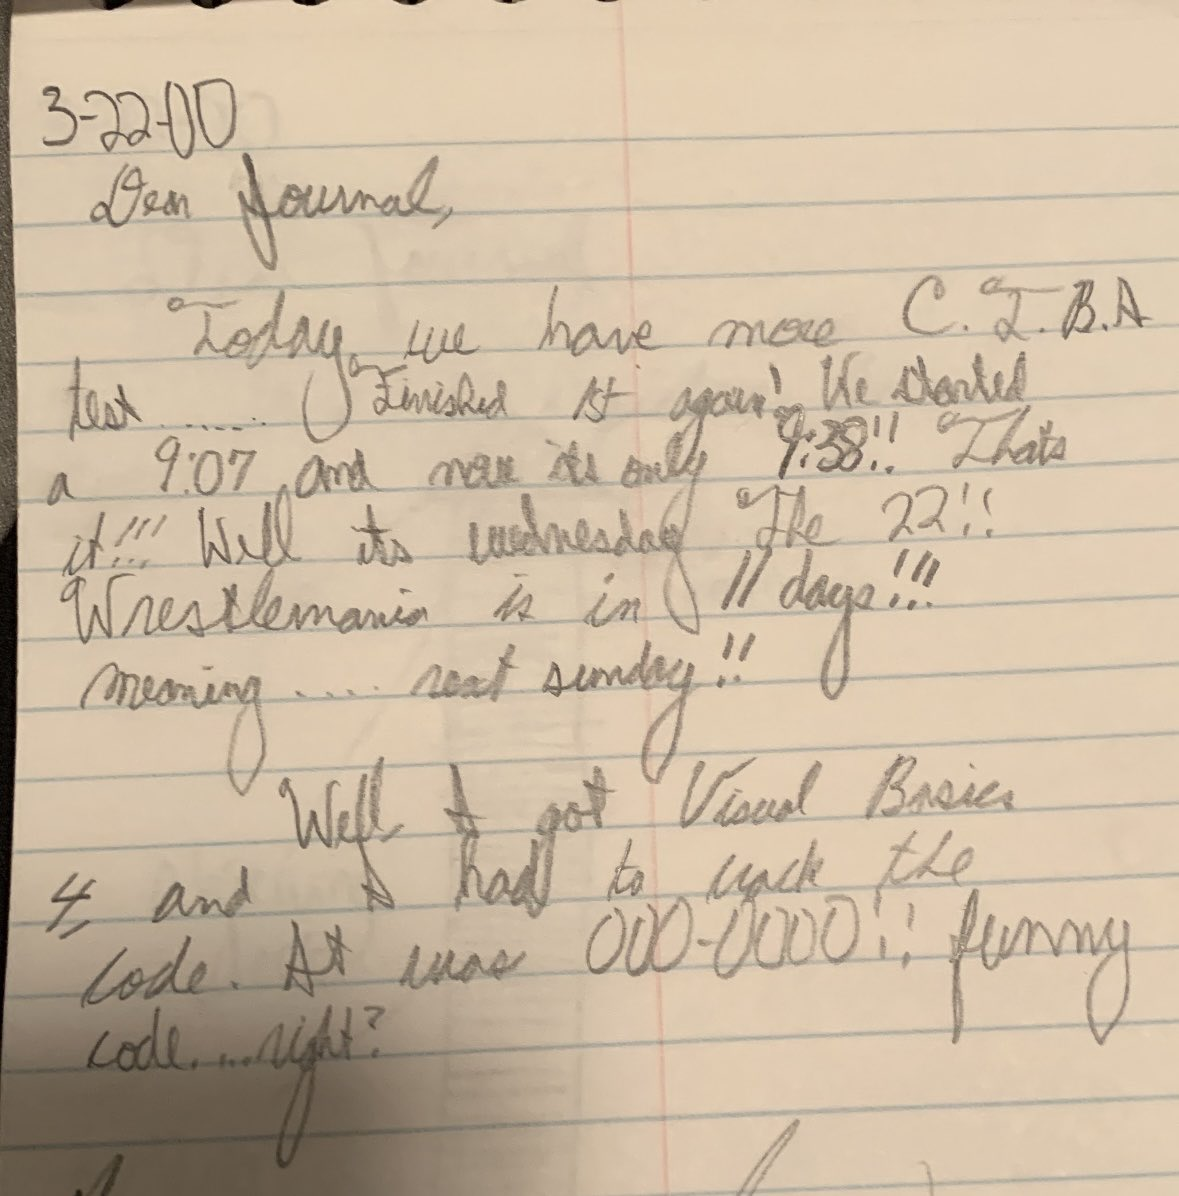 3-22-00
Dear Journal,
Today, we have more C.I.B.A
test ...... I Finished 1st again! We started
a 9:07 and now its only 9:38!! Thats
it!!! Well its wednesday The 22!!
Wrestlemania is in 11 days!!!
meaning .... next sunday!!
Well I got Visual Basics
4, and I had to crack the
code. It was 000-0000!! funny
code....right?